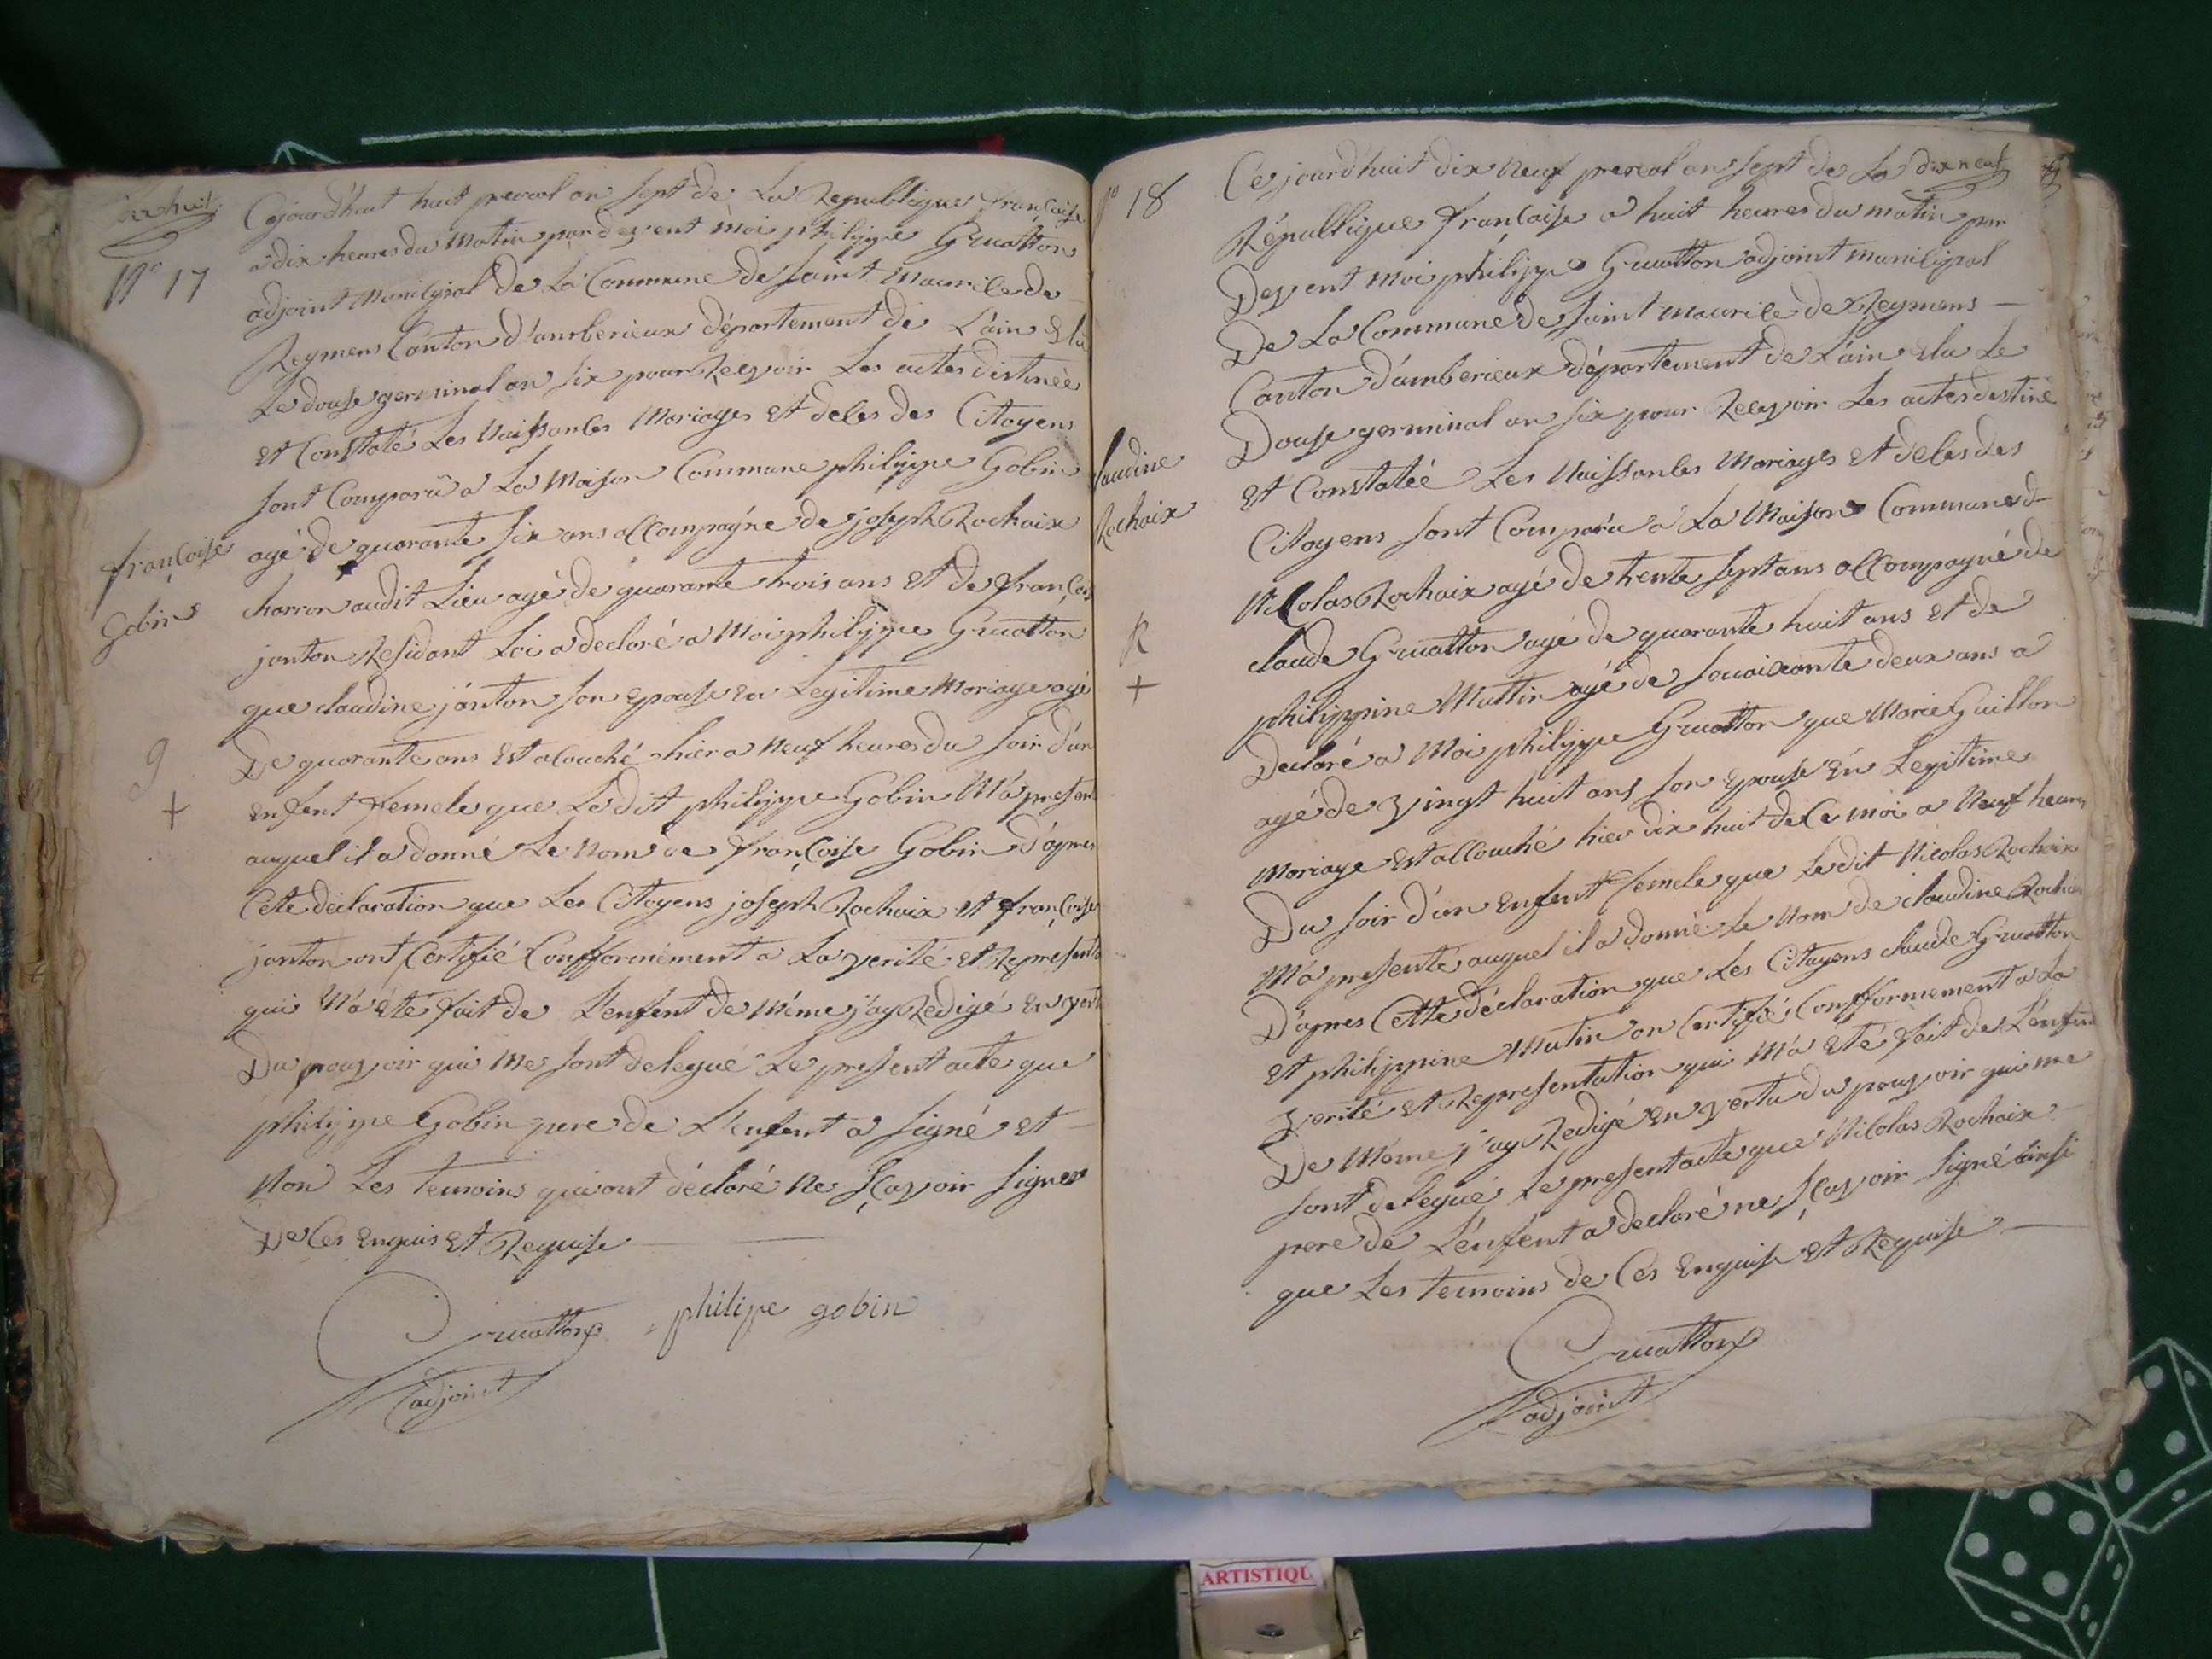 dix huit
N° 17
françoise
Gobin
g
+
Cejourdhuit huit prereal an sept de La Republique françaises
a dix heures du Matin par devent Moi philippe Gruatton
adjoint Municipal de La Commune de Saint Maurice de
Reymens Canton d'amberieux département de L'ain Elu
Le douse germinal an six pour Recevoir Les actes distineés
Et Constaté Les Naissances Mariages Et deces des Citoyens
sont Comparû a La Maison Commune philippe Gobin
agé de quarante six ans accompagne de joseph Rochaix
charron audit Lieu agé de quarante trois ans Et de françois
janton Residant Loi a declaré a Moi philippe Gruatton
que claudine janton son Epouse En Legitime Mariage agé
De quarante ans Est acouché hier a Neuf heures du soir d'un
Enfent femele que Ledit philippe Gobin M'a present
auquel il a donné Le Nom de françoise Gobin D'apres
Cete declaration que Les Citoyens joseph Rochaix Et françoise
janton ont Certifié Confformément a La verité Et Represent
qui M'a Eté fait de L'enfent de Méme j'ay Redigé En vertu
Du pouvoir qui Me sont delegué Le present acte que
philippe Gobin pere de L'enfent a signé Et
Non Les temoins qui ont déclaré Ne sçavoir signer
De Ces Enquis Et Requise
Gruatton philipe gobin
adjoint
N° 18
Claudine
Rochaix
R
+
Ce jourd'huit dix Neuf prereal an sept de La dix neuf
République française a huit heures du matin par
Devent Moi philippe Gruatton adjoint municipal
De La Commune de Saint Maurice de Reymens
Canton d'amberieux département de L'ain Elu Le
Douse germinal an six pour Recevoir Les actes destiné
Et Constateé Les Naissances Mariages Et deces des
Citoyens sont Comparu a La Maison Commune
Nicolas Rochaix agé de trente sept ans accompagné de
claude Gruatton agé de quarante huit ans Et de
philippine Muttin agé de souaixante deux ans a
Declaré a Moi philippe Gruatton que Marie Guillon
agé de vingt huit ans son Epouse En Legitime
Mariage Est accouché hier dix huit de Ce moi a Neuf heures
Du soir d'un Enfent femele que Ledit Nicolas Rochaix
M'a presenté auquel il a donné Le Nom de claudine Rochaix
D'apres Cette déclaration que Les Citoyens claude Gruatton
Et philippine Mutin on Certifié Confformement a La
verité Et Representation qui M'a Eté fait de L'enfent
De Méme j'ay Redigé En vertu du pouvoir qui me
sont delegué Le present acte que Nicolas Rochaix
pere de L'énfént a declaré ne sçavoir signé ainsi
que Les temoins de Ces Enquise Et Requise
Gruatton
adjoint
ARTISTIQU